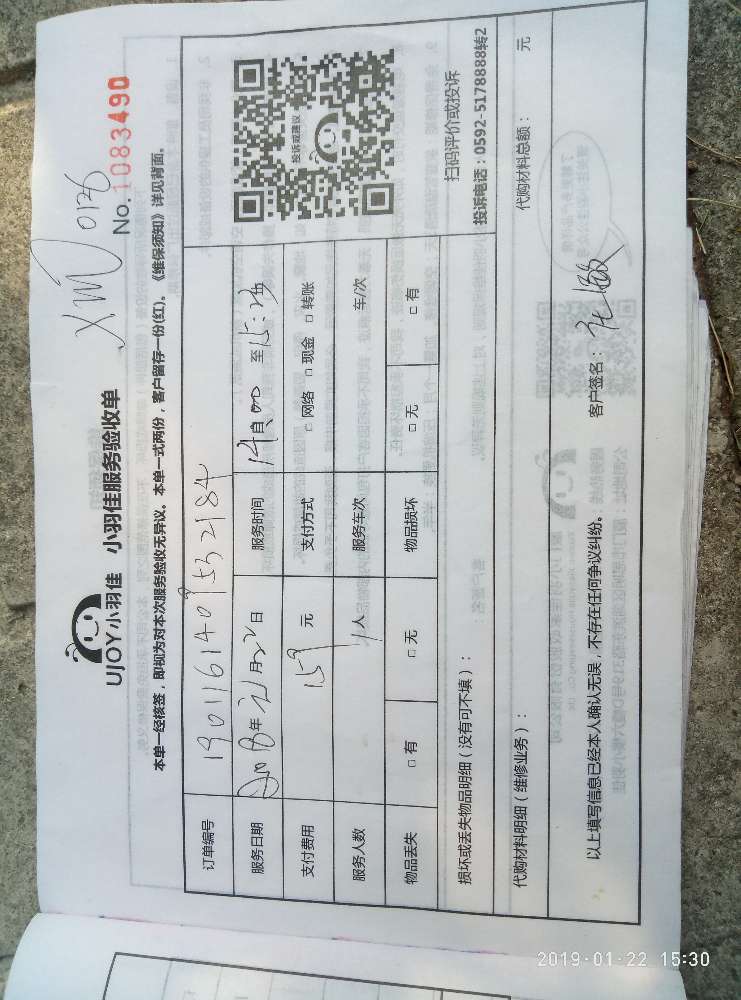 XM 0126
No. 1083490
UJOY小羽佳 小羽佳服务验收单
本单一经核签，即视为对本次服务验收无异议。本单一式两份，客户留存一份(红)。《维保须知》详见背面。
订单编号 1901161409532184
服务日期 年 月 日 服务时间 14 自 00 至 15:
支付费用 159 元 支付方式 □ 网络 □ 现金 □ 转账
服务人数 1 人 服务车次 车/次
物品丢失 □ 有 □ 无 物品损坏 □ 无 □ 有
投诉或建议
扫码评价或投诉
投诉电话：0592-5178888转2
损坏或丢失物品明细（没有可不填）：
代购材料明细（维修业务）： 代购材料总额： 元
以上填写信息已经本人确认无误，不存在任何争议纠纷。 客户签名：
2019-01-22 15:30